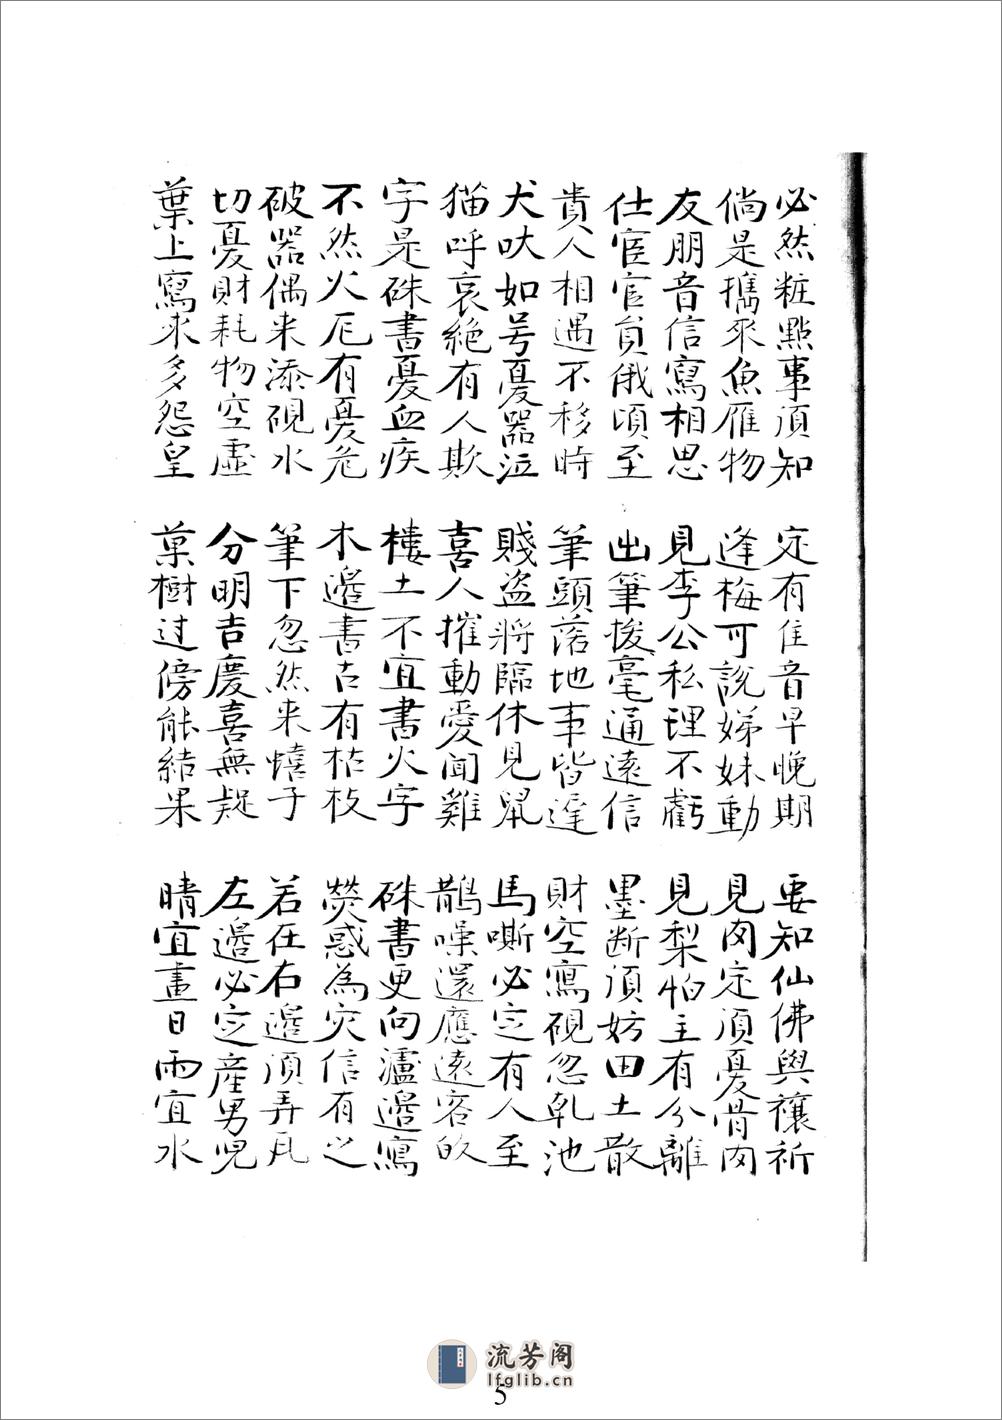 必然粧點事須知　定有佳音早晚期　要知仙佛與禳祈
倘是擕來魚雁物　逢梅可說娣妹動　見肉定須憂骨肉
友朋音信寫相思　見李公私理不虧　見梨怕主有分離
仕宦官員俄頃至　出筆拨毫通遠信　墨断須妨田土散
貴人相遇不移時　筆頭落地事皆遲　財空寫硯忽乹池
犬吠如号憂器泣　賤盗將臨休見鼠　馬嘶必定有人至
猫呼哀絶有人欺　喜人摧動愛聞雞　鵲噪還應遠客的
字是硃書憂血疾　楼土不宜書火字　硃書更向瀘邉寫
不然火厄有憂危　木邉書古有枯枝　熒惑為灾信有之
破器偶来添硯水　筆下忽然来蟢子　若在右邉須弄瓦
切憂財耗物空虚　分明吉慶喜無疑　左邉必定産男児
葉上寫来多怨皇　菓樹过傍能結果　晴宜畫日雨宜水
流芳阁
lfglib.cn
5